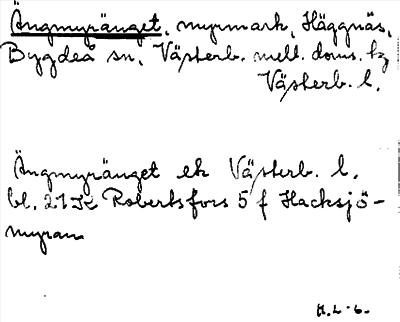 Ängmyränget, myrmark, Häggnäs,
Bygdeå sn, Västerb. mell. doms. tg
Västerb. l.
Ängmyränget ek Västerb. l.
bl. 21K Robertsfors 5 f Hacksjö-
myran
H.L-6.